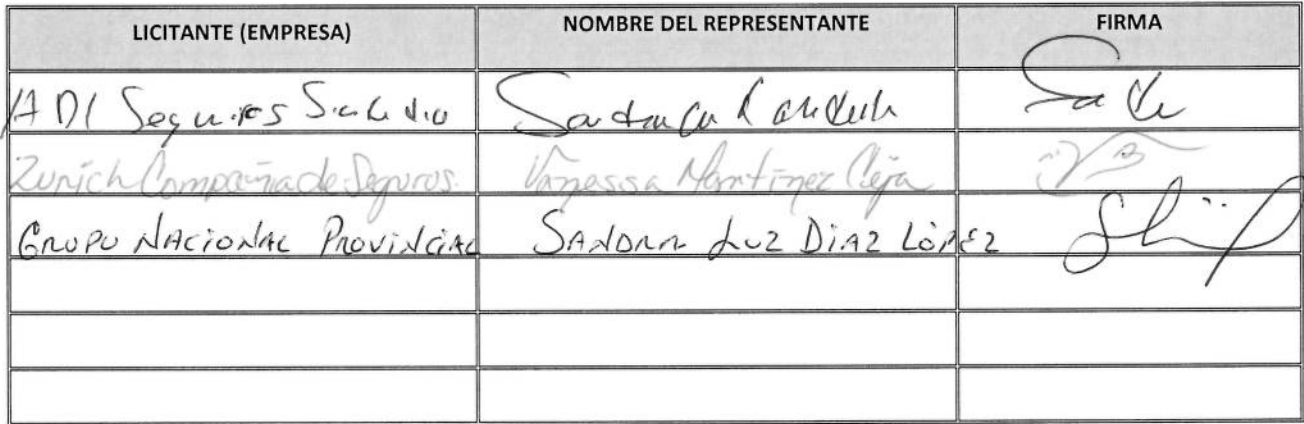 LICITANTE (EMPRESA) NOMBRE DEL REPRESENTANTE FIRMA
ADI Seguros
Zurich Compañia de Seguros. Vanessa Martinez Ceja
GRUPO NACIONAL PROVINCIAL SANDRA LUZ DIAZ LÓPEZ